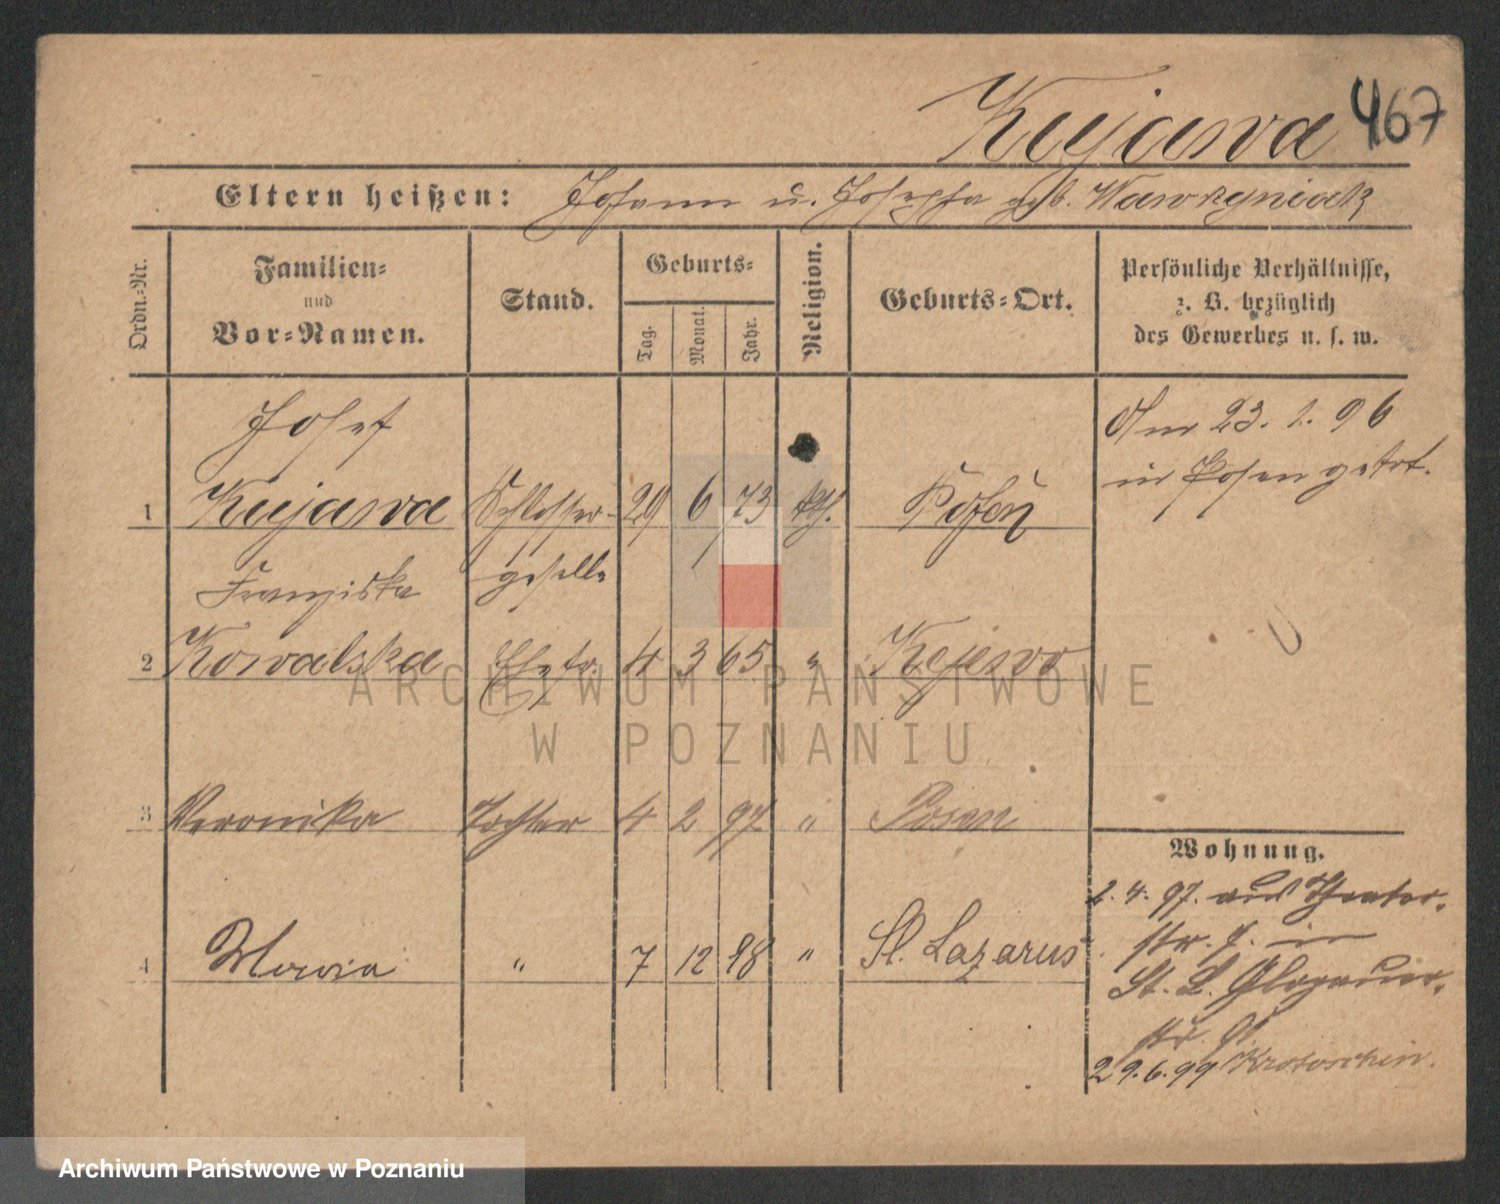 Kujawa 467
Eltern heißen: Johann u. Josepha geb. Wawrzyniak
Ordn.-Nr.
Familien-
und
Vor-Namen.
Stand.
Geburts-
Tag.
Monat.
Jahr.
Religion.
Geburts-Ort.
Persönliche Verhältnisse,
z. B. bezüglich
des Gewerbes u. s. w.
Josef
1 Kujawa Schlosser- 29 6 73 kth. Posen
geselle
Am 23. 1. 96
in Posen getrt.
Franziska
2 Kowalska Ehefr. 4 3 65 " Kijewo
3 Veronika Tochter 4 2 97 " Posen
4 Maria " 7 12 98 " St. Lazarus
Wohnung.
2. 4. 97. aus Theater-
str. 7. in
St. L. Glogauer-
str. 91
29. 6. 99 Krotoschin.
ARCHIWUM PAŃSTWOWE
W POZNANIU
Archiwum Państwowe w Poznaniu